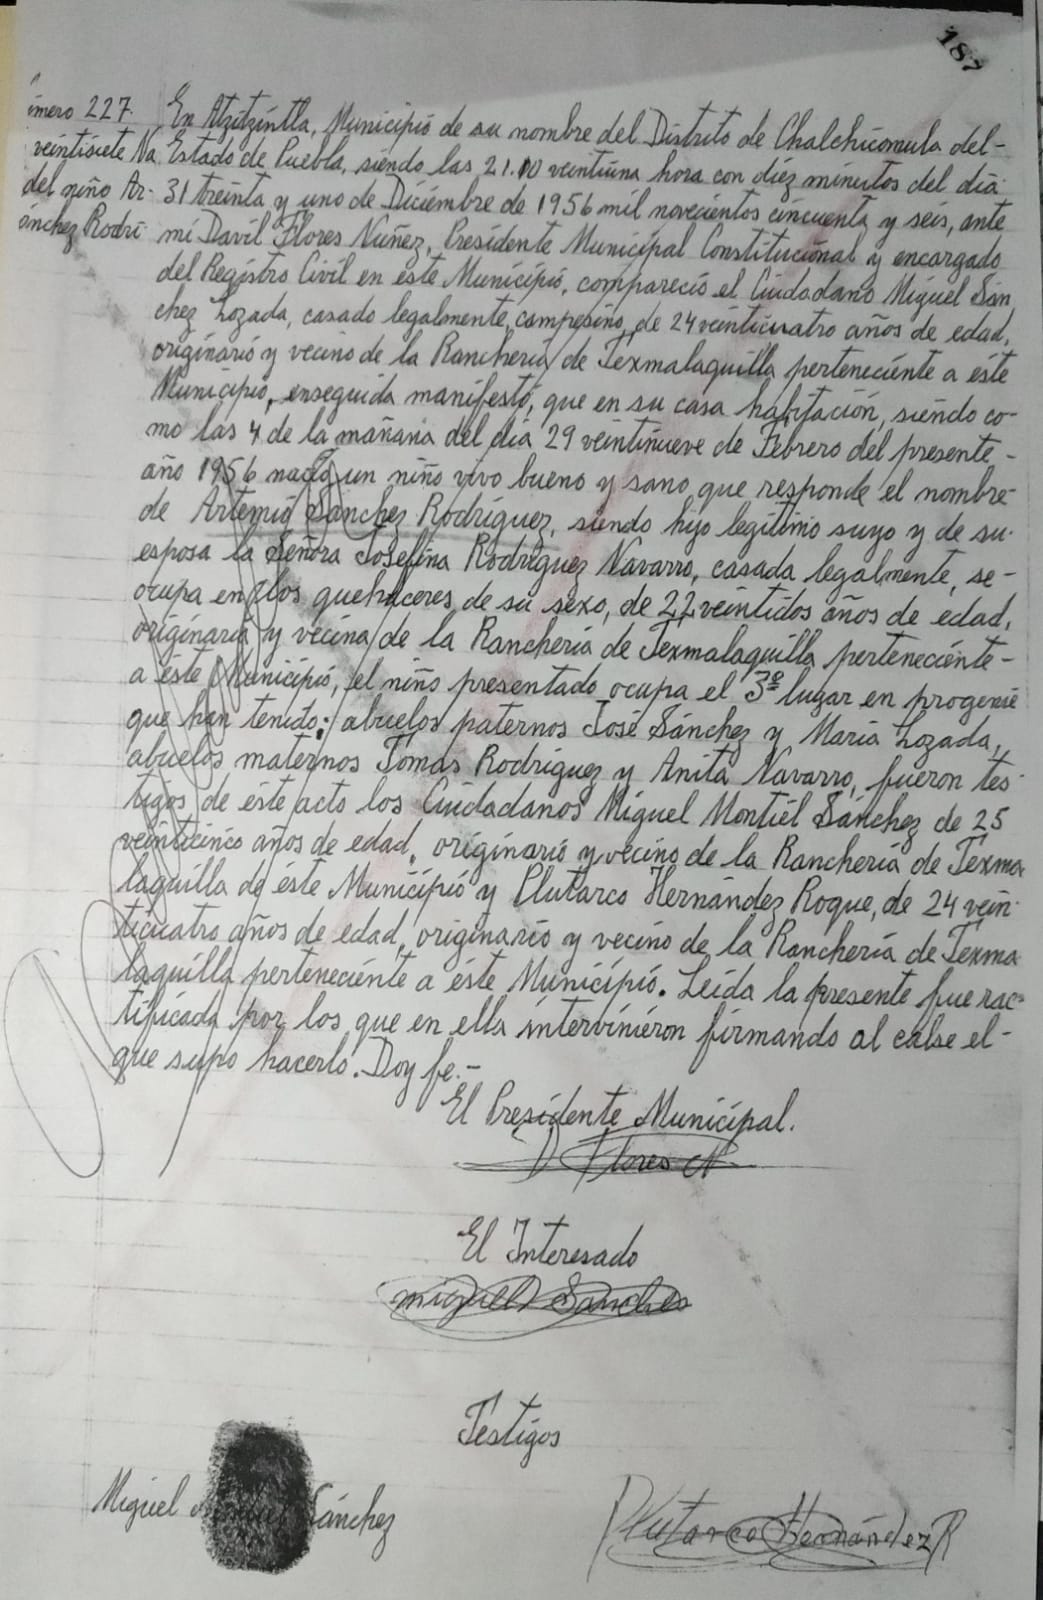 187
úmero 227.
veintisiete Na
del niño Ar-
ánchez Rodrí
En Atzitzintla, Municipio de su nombre del Distrito de Chalchicomula del-
Estado de Puebla, siendo las 21.10 veintiuna hora con diez minutos del día
31 treinta y uno de Diciembre de 1956 mil novecientos cincuenta y seis, ante
mi David Flores Nuñez, Presidente Municipal Constitucional y encargado
del Registro Civil en este Municipio, compareció el Ciudadano Miguel Sán
chez Lozada, casado legalmente, campesino, de 24 veinticuatro años de edad,
originario y vecino de la Ranchería de Texmalaquilla perteneciente a éste
Municipio, enseguida manifestó, que en su casa habitación, siendo co-
mo las 4 de la mañana del día 29 veintinueve de Febrero del presente-
año 1956 nació un niño vivo bueno y sano que responde el nombre-
de Artemio Sánchez Rodríguez, siendo hijo legítimo suyo y de su-
esposa la Señora Josefina Rodríguez Navarro, casada legalmente, se-
ocupa en los quehaceres de su sexo, de 22 veintidos años de edad,
originaria y vecina de la Ranchería de Texmalaquilla perteneciente-
a éste Municipio, el niño presentado ocupa el 3º lugar en progenie
que han tenido; abuelos paternos José Sánchez y María Lozada,
abuelos maternos Tomás Rodríguez y Anita Navarro, fueron tes-
tigos de éste acto los Cuidadanos Miguel Montiel Sánchez de 25
veinticinco años de edad, originario y vecino de la Ranchería de Texma
laquilla de éste Municipio y Plutarco Hernández Roque, de 24 vein-
ticuatro años de edad, originario y vecino de la Ranchería de Texma
laquilla perteneciente a éste Municipio. Leída la presente fue rac-
tificada por los que en ella intervinieron firmando al calse el-
que supo hacerlo. Doy fe.-
El Presidente Municipal.
D Flores N
El Interesado
miguel Sanches
Testigos
Miguel Sánchez
Plutarco Hernández R